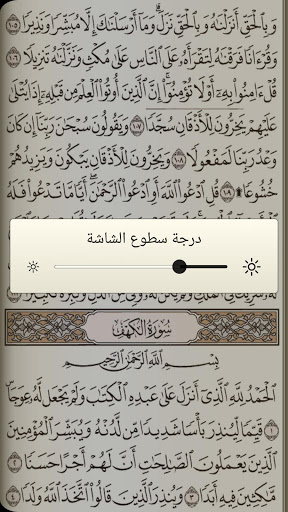 وَبِٱلْحَقِّ أَنزَلْنَٰهُ وَبِٱلْحَقِّ نَزَلَ ۗ وَمَآ أَرْسَلْنَٰكَ إِلَّا مُبَشِّرًا وَنَذِيرًا ١٠٥
وَقُرْءَانًا فَرَقْنَٰهُ لِتَقْرَأَهُۥ عَلَى ٱلنَّاسِ عَلَىٰ مُكْثٍ وَنَزَّلْنَٰهُ تَنزِيلًا ١٠٦
قُلْ ءَامِنُوا۟ بِهِۦٓ أَوْ لَا تُؤْمِنُوٓا۟ ۚ إِنَّ ٱلَّذِينَ أُوتُوا۟ ٱلْعِلْمَ مِن قَبْلِهِۦٓ إِذَا يُتْلَىٰ
عَلَيْهِمْ يَخِرُّونَ لِلْأَذْقَانِ سُجَّدًا ١٠٧ وَيَقُولُونَ سُبْحَٰنَ رَبِّنَآ إِن كَانَ
وَعْدُ رَبِّنَا لَمَفْعُولًا ١٠٨ وَيَخِرُّونَ لِلْأَذْقَانِ يَبْكُونَ وَيَزِيدُهُمْ
خُشُوعًا ۩ ١٠٩ قُلِ ٱدْعُوا۟ ٱللَّهَ أَوِ ٱدْعُوا۟ ٱلرَّحْمَٰنَ ۖ أَيًّا مَّا تَدْعُوا۟ فَلَهُ
درجة سطوع الشاشة
سُورَةُ الكَهْفِ
بِسْمِ ٱللَّهِ ٱلرَّحْمَٰنِ ٱلرَّحِيمِ
ٱلْحَمْدُ لِلَّهِ ٱلَّذِىٓ أَنزَلَ عَلَىٰ عَبْدِهِ ٱلْكِتَٰبَ وَلَمْ يَجْعَل لَّهُۥ عِوَجَا ۜ ١
قَيِّمًا لِّيُنذِرَ بَأْسًا شَدِيدًا مِّن لَّدُنْهُ وَيُبَشِّرَ ٱلْمُؤْمِنِينَ
ٱلَّذِينَ يَعْمَلُونَ ٱلصَّٰلِحَٰتِ أَنَّ لَهُمْ أَجْرًا حَسَنًا ٢
مَّٰكِثِينَ فِيهِ أَبَدًا ٣ وَيُنذِرَ ٱلَّذِينَ قَالُوا۟ ٱتَّخَذَ ٱللَّهُ وَلَدًا ٤